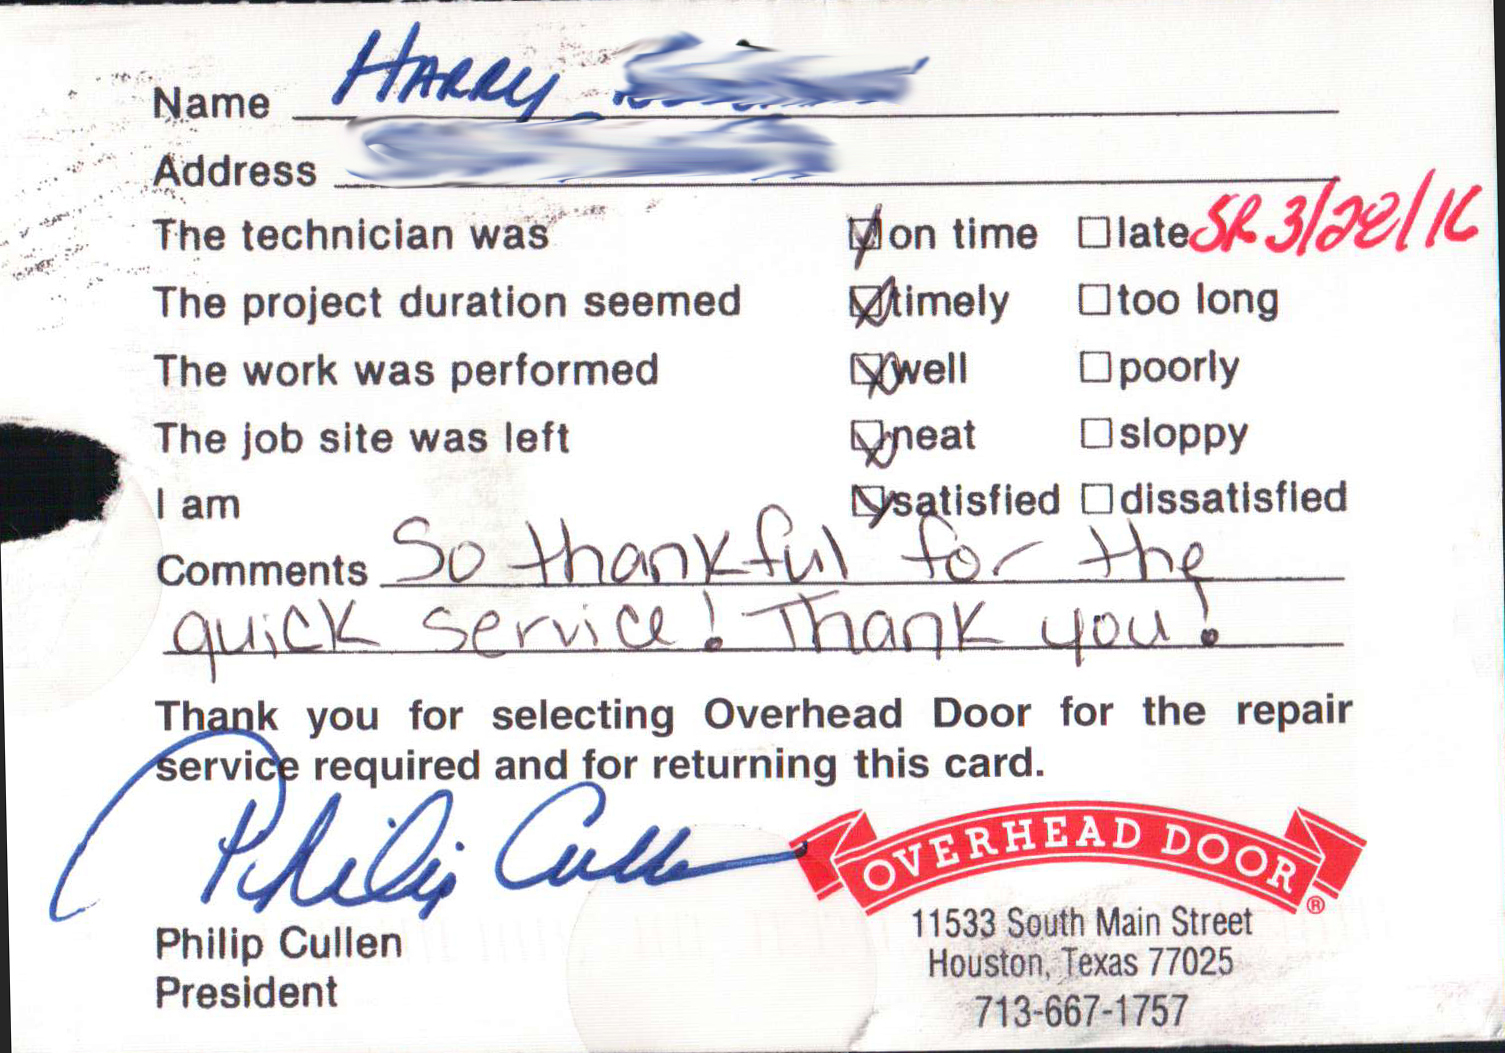 Name HARRY
Address
The technician was on time late SR 3/28/16
The project duration seemed timely too long
The work was performed well poorly
The job site was left neat sloppy
I am satisfied dissatisfied
Comments So thankful for the
quick service! Thank you!
Thank you for selecting Overhead Door for the repair
service required and for returning this card.
Philip Cullen
OVERHEAD DOOR ®
Philip Cullen
President
11533 South Main Street
Houston, Texas 77025
713-667-1757